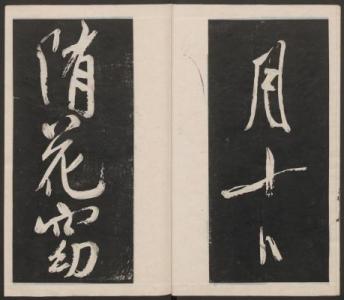 月十八
随花窈